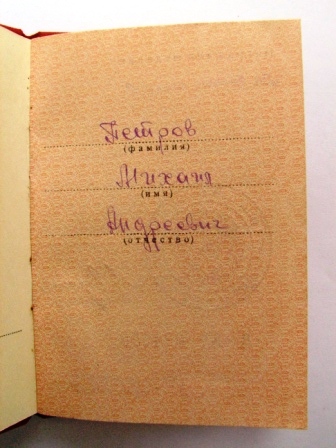 Петров
(фамилия)
Михаил
(имя)
Андреевич
(отчество)